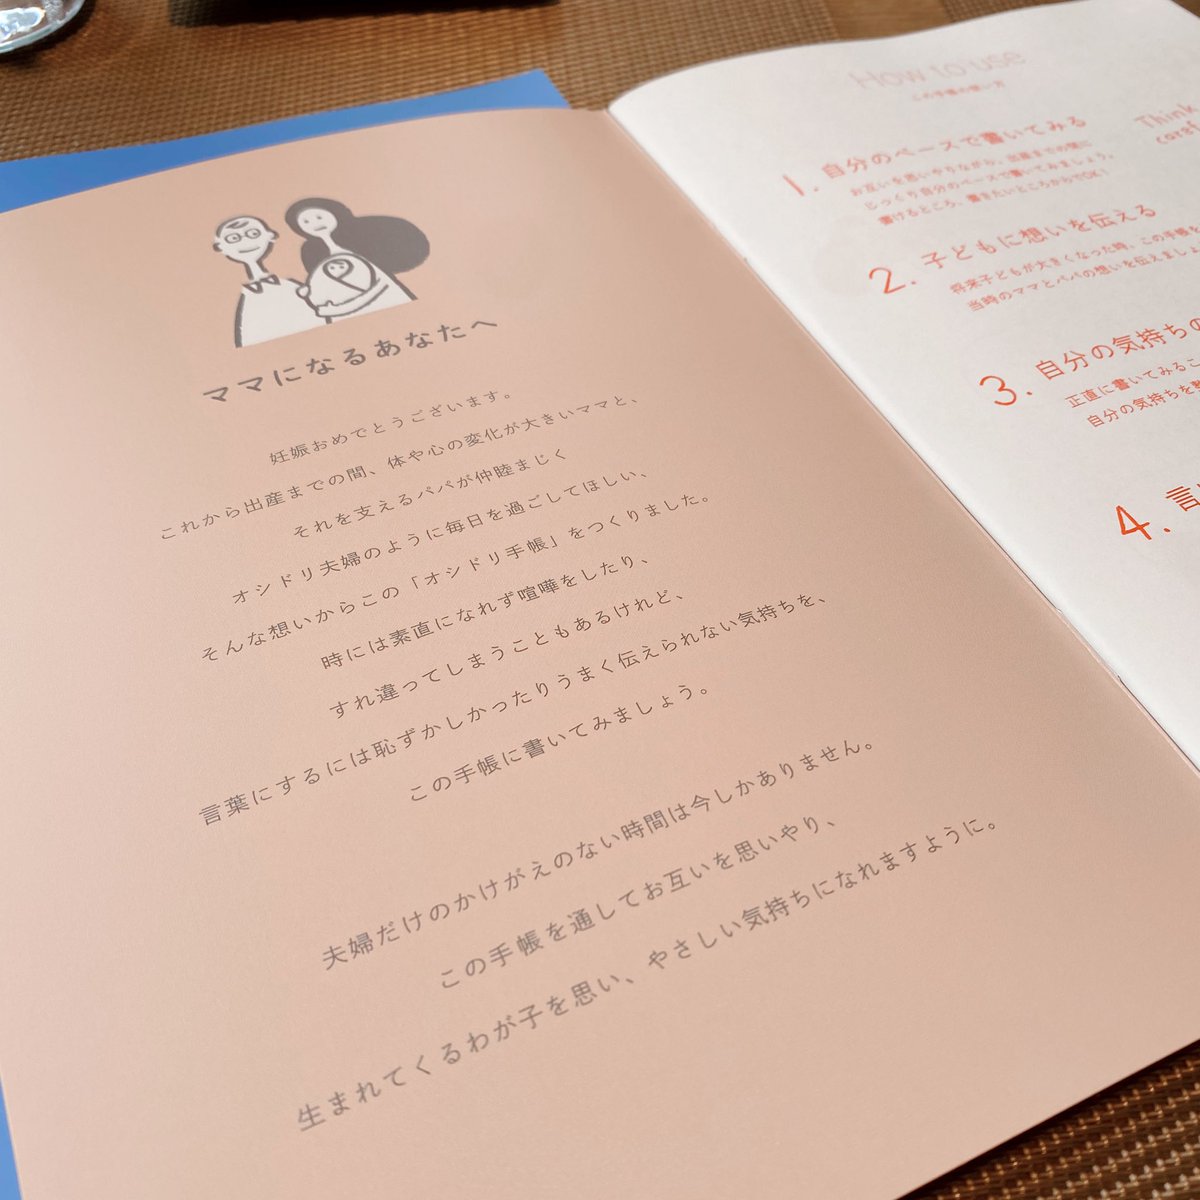 ママになるあなたへ
妊娠おめでとうございます。
これから出産までの間、体や心の変化が大きいママと、
それを支えるパパが仲睦まじく
オシドリ夫婦のように毎日を過ごしてほしい、
そんな想いからこの「オシドリ手帳」をつくりました。
時には素直になれず喧嘩をしたり、
すれ違ってしまうこともあるけれど、
言葉にするには恥ずかしかったりうまく伝えられない気持ちを、
この手帳に書いてみましょう。
夫婦だけのかけがえのない時間は今しかありません。
この手帳を通してお互いを思いやり、
生まれてくるわが子を思い、やさしい気持ちになれますように。
How to use
この手帳の使い方
Think
1. 自分のペースで書いてみる
お互いを思いやりながら、出産までの間に
じっくり自分のペースで書いてみましょう。
書けるところ、書きたいところからでOK!
2. 子どもに想いを伝える
将来子どもが大きくなった時、この手帳を
当時のママとパパの想いを伝えましょ
3. 自分の気持ちの
正直に書いてみるこ
自分の気持ちを
4. 言